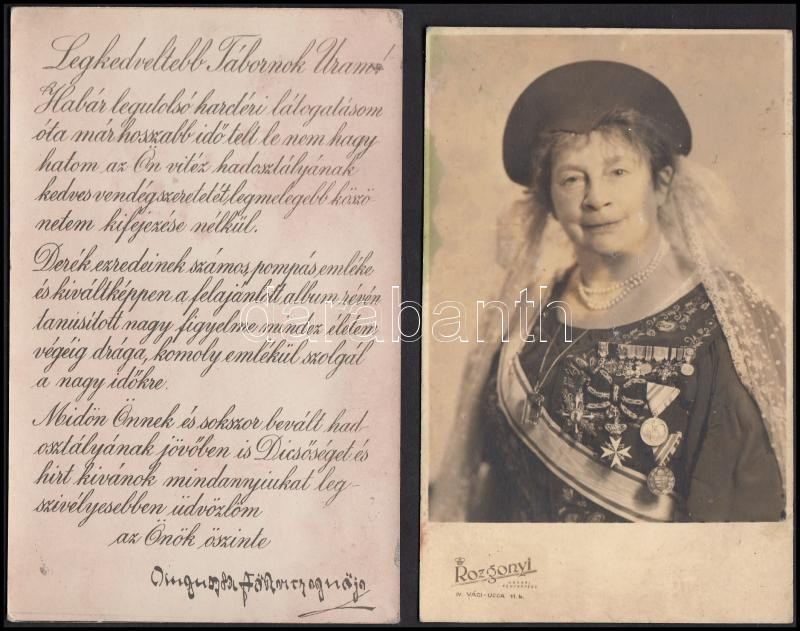 Legkedveltebb Tábornok Uram!
Habár legutolsó harctéri látogatásom
óta már hosszabb idő telt le nem hagy
hatom az Ön vitéz hadosztályának
kedves vendégszeretetét, legmelegebb köszö
netem kifejezése nélkül.
Derék ezredeinek számos, pompás, emléke
és kiváltképpen a felajánlott album révén
tanúsított nagy figyelme mindez életem
végéig drága, komoly emlékül szolgál
a nagy időkre.
Midőn Önnek és sokszor bevált had-
osztályának jövőben is Dicsőséget és
hírt kivánok mindannyiukat leg-
szívélyesebben üdvözlöm
az Önök őszinte
Auguszta Főherczegnője
darabanth.com
Rozgonyi
IV. VÁCI-UCCA 11.b.